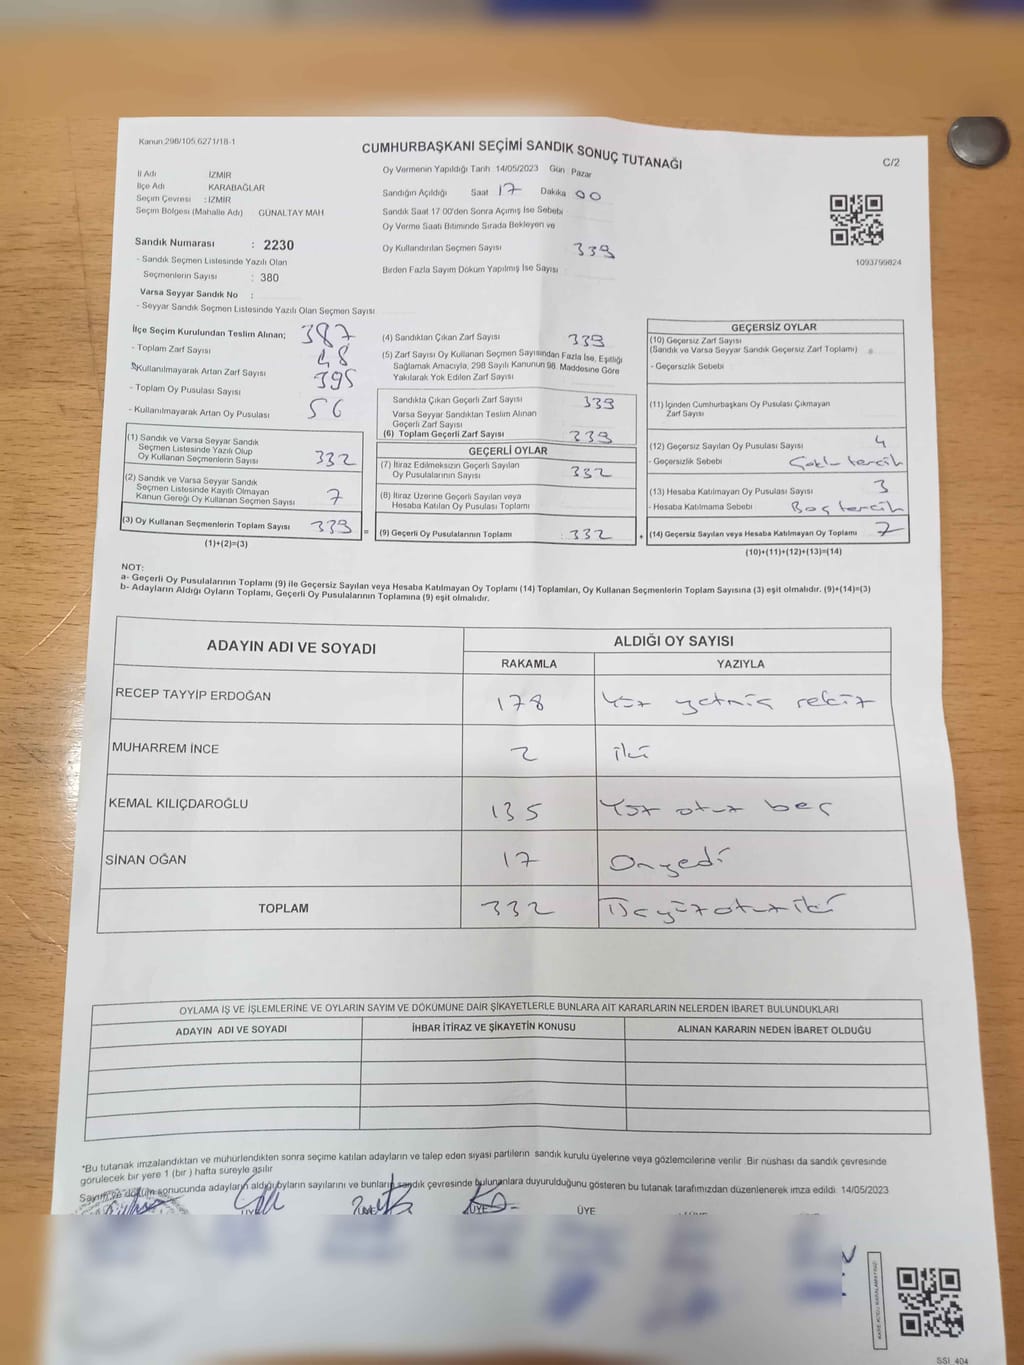 Kanun 298/105,6271/18-1
CUMHURBAŞKANI SEÇİMİ SANDIK SONUÇ TUTANAĞI
C/2
İl Adı İZMİR
İlçe Adı KARABAĞLAR
Seçim Çevresi : İZMİR
Seçim Bölgesi (Mahalle Adı) GÜNALTAY MAH
Sandık Numarası : 2230
- Sandık Seçmen Listesinde Yazılı Olan
Seçmenlerin Sayısı : 380
Varsa Seyyar Sandık No :
- Seyyar Sandık Seçmen Listesinde Yazılı Olan Seçmen Sayısı
Oy Vermenin Yapıldığı Tarih 14/05/2023 Gün Pazar
Sandığın Açıldığı Saat 17 Dakika 00
Sandık Saat 17.00'den Sonra Açımış İse Sebebi
Oy Verme Saati Bitiminde Sırada Bekleyen ve
Oy Kullandırılan Seçmen Sayısı 339
Birden Fazla Sayım Döküm Yapılmış İse Sayısı
1093799824
İlçe Seçim Kurulundan Teslim Alınan; 387
- Toplam Zarf Sayısı
48
Kullanılmayarak Artan Zarf Sayısı
395
- Toplam Oy Pusulası Sayısı
- Kullanılmayarak Artan Oy Pusulası 56
(1) Sandık ve Varsa Seyyar Sandık
Seçmen Listesinde Yazılı Olup
Oy Kullanan Seçmenlerin Sayısı 332
(2) Sandık ve Varsa Seyyar Sandık
Seçmen Listesinde Kayıtlı Olmayan
Kanun Gereği Oy Kullanan Seçmen Sayısı 7
(3) Oy Kullanan Seçmenlerin Toplam Sayısı 339 =
(1)+(2)=(3)
(4) Sandıktan Çıkan Zarf Sayısı 339
(5) Zarf Sayısı Oy Kullanan Seçmen Sayısından Fazla İse, Eşitliği
Sağlamak Amacıyla, 298 Sayılı Kanunun 98. Maddesine Göre
Yakılarak Yok Edilen Zarf Sayısı
Sandıkta Çıkan Geçerli Zarf Sayısı 339
Varsa Seyyar Sandıktan Teslim Alınan
Geçerli Zarf Sayısı
(6) Toplam Geçerli Zarf Sayısı 339
GEÇERLİ OYLAR
(7) İtiraz Edilmeksizin Geçerli Sayılan
Oy Pusulalarının Sayısı 332
(8) İtiraz Üzerine Geçerli Sayılan veya
Hesaba Katılan Oy Pusulası Toplamı
(9) Geçerli Oy Pusulalarının Toplamı : 332 +
GEÇERSİZ OYLAR
(10) Geçersiz Zarf Sayısı
(Sandık ve Varsa Seyyar Sandık Geçersiz Zarf Toplamı)
- Geçersizlik Sebebi
(11) İçinden Cumhurbaşkanı Oy Pusulası Çıkmayan
Zarf Sayısı
(12) Geçersiz Sayılan Oy Pusulası Sayısı 4
- Geçersizlik Sebebi Çoklu tercih
(13) Hesaba Katılmayan Oy Pusulası Sayısı 3
- Hesaba Katılmama Sebebi Boş tercih
(14) Geçersiz Sayılan veya Hesaba Katılmayan Oy Toplamı 7
(10)+(11)+(12)+(13)=(14)
NOT:
a- Geçerli Oy Pusulalarının Toplamı (9) ile Geçersiz Sayılan veya Hesaba Katılmayan Oy Toplamı (14) Toplamları, Oy Kullanan Seçmenlerin Toplam Sayısına (3) eşit olmalıdır. (9)+(14)=(3)
b- Adayların Aldığı Oyların Toplamı, Geçerli Oy Pusulalarının Toplamına (9) eşit olmalıdır.
ADAYIN ADI VE SOYADI ALDIĞI OY SAYISI
RAKAMLA YAZIYLA
RECEP TAYYİP ERDOĞAN 178 Yüz yetmiş sekiz
MUHARREM İNCE 2 iki
KEMAL KILIÇDAROĞLU 135 Yüz otuz beş
SİNAN OĞAN 17 Onyedi
TOPLAM 332 Üçyüzotuziki
OYLAMA İŞ VE İŞLEMLERİNE VE OYLARIN SAYIM VE DÖKÜMÜNE DAİR ŞİKAYETLERLE BUNLARA AİT KARARLARIN NELERDEN İBARET BULUNDUKLARI
ADAYIN ADI VE SOYADI İHBAR İTİRAZ VE ŞİKAYETİN KONUSU ALINAN KARARIN NEDEN İBARET OLDUĞU
*Bu tutanak imzalandıktan ve mühürlendikten sonra seçime katılan adayların ve talep eden siyasi partilerin sandık kurulu üyelerine veya gözlemcilerine verilir. Bir nüshası da sandık çevresinde
görülecek bir yere 1 (bir ) hafta süreyle asılır
Sayım ve döküm sonucunda adayların aldığı oyların sayılarını ve bunların sandık çevresinde bulunanlara duyurulduğunu gösteren bu tutanak tarafımızdan düzenlenerek imza edildi. 14/05/2023
ÜYE ÜYE ÜYE
SSI 404